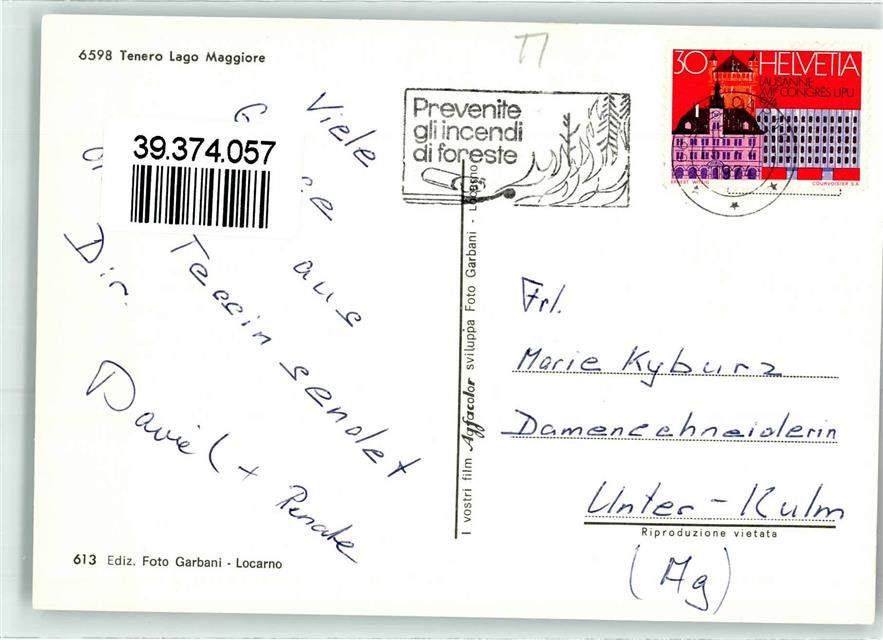 6598 Tenero Lago Maggiore
Viele
aus
Tessin sendet
Dir.
Daniel + Renate
39.374.057
613 Ediz. Foto Garbani - Locarno
I vostri film Agfacolor sviluppa Foto Garbani - Locarno
Prevenite
gli incendi
di foreste
30 HELVETIA
LAUSANNE
XVIIe CONGRÈS UPU
1974
ERNEST WITZIG
COURVOISIER S.A.
Frl.
Marie Kyburz
Damenschneiderin
Unter-Kulm
Riproduzione vietata
(Ag)